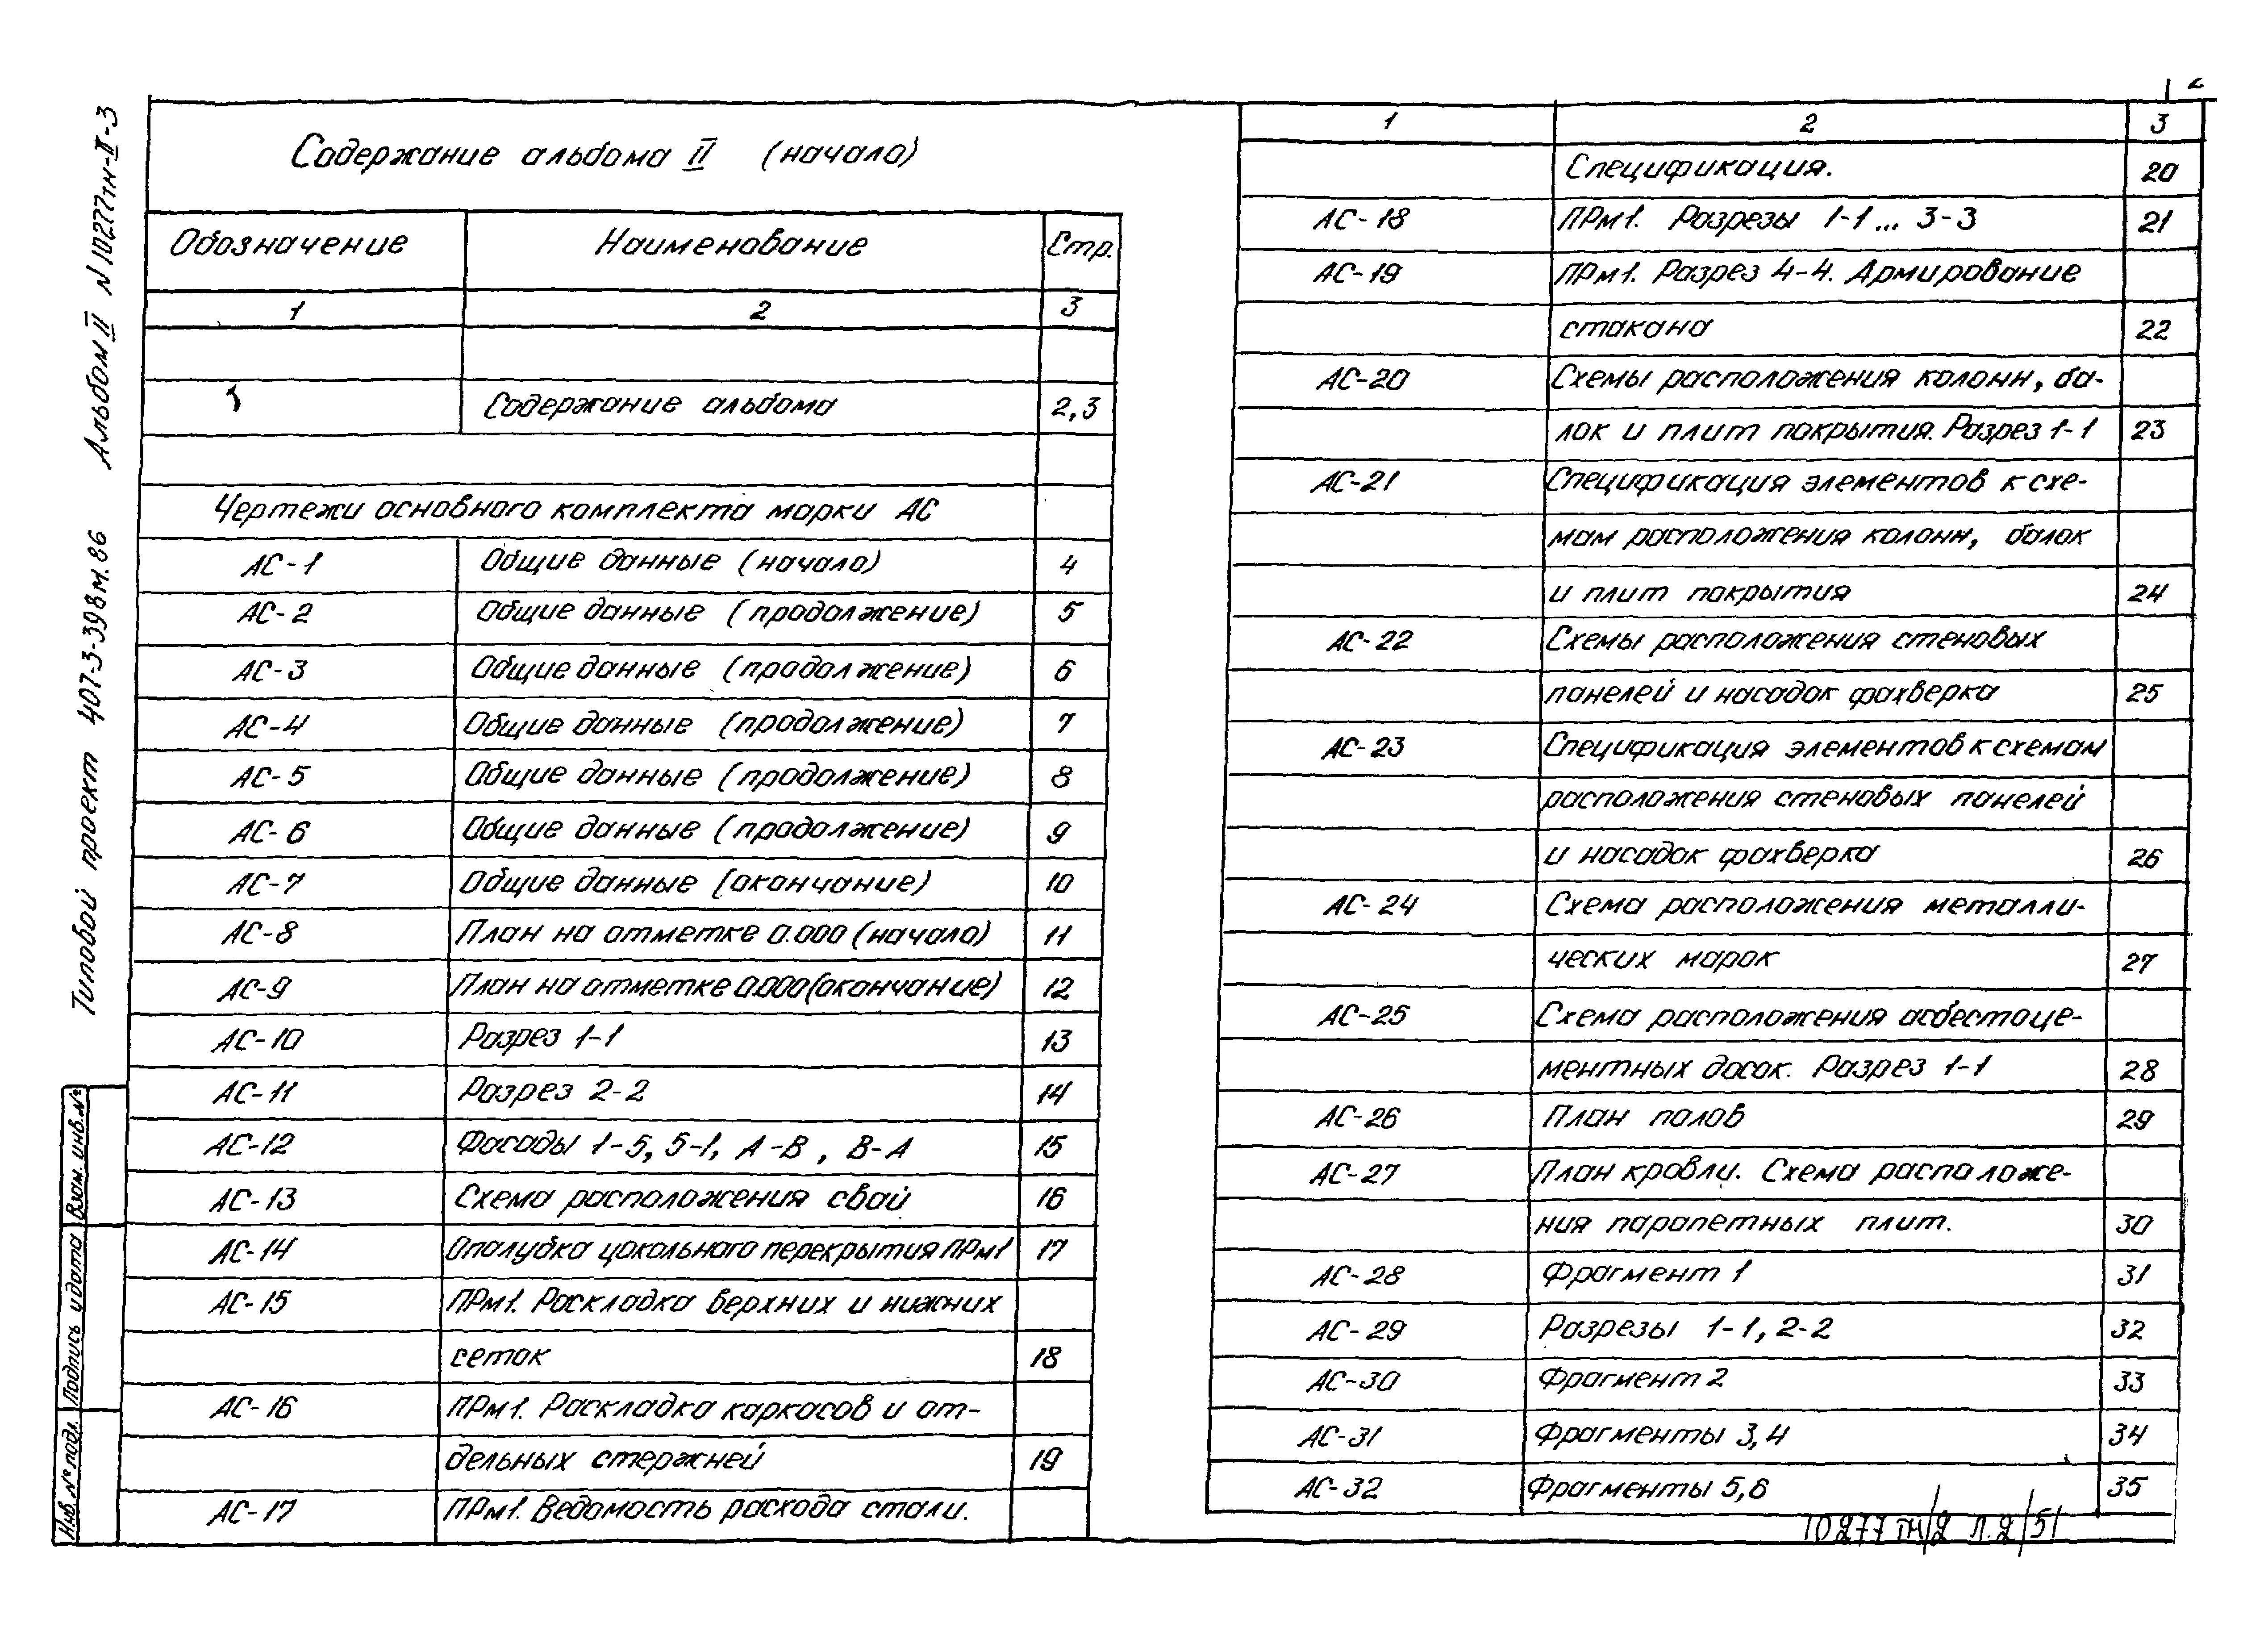 2
Типовой проект 407-3-398м.86 Альбом II N 10277тм-II-3
Содержание альбома II (начало)
Обозначение Наименование Стр.
1 2 3
Содержание альбома 2,3
Чертежи основного комплекта марки АС
АС-1 Общие данные (начало) 4
АС-2 Общие данные (продолжение) 5
АС-3 Общие данные (продолжение) 6
АС-4 Общие данные (продолжение) 7
АС-5 Общие данные (продолжение) 8
АС-6 Общие данные (продолжение) 9
АС-7 Общие данные (окончание) 10
АС-8 План на отметке 0.000 (начало) 11
АС-9 План на отметке 0.000 (окончание) 12
АС-10 Разрез 1-1 13
АС-11 Разрез 2-2 14
АС-12 Фасады 1-5, 5-1, А-В, В-А 15
АС-13 Схема расположения свай 16
АС-14 Опалубка цокольного перекрытия ПРм1 17
АС-15 ПРм1. Раскладка верхних и нижних
сеток 18
АС-16 ПРм1. Раскладка каркасов и от-
дельных стержней 19
АС-17 ПРм1. Ведомость расхода стали.
1 2 3
Спецификация. 20
АС-18 ПРм1. Разрезы 1-1... 3-3 21
АС-19 ПРм1. Разрез 4-4. Армирование
стакана 22
АС-20 Схемы расположения колонн, ба-
лок и плит покрытия. Разрез 1-1 23
АС-21 Спецификация элементов к схе-
мам расположения колонн, балок
и плит покрытия 24
АС-22 Схемы расположения стеновых
панелей и насадок фахверка 25
АС-23 Спецификация элементов к схемам
расположения стеновых панелей
и насадок фахверка 26
АС-24 Схема расположения металли-
ческих марок 27
АС-25 Схема расположения асбестоце-
ментных досок. Разрез 1-1 28
АС-26 План полов 29
АС-27 План кровли. Схема расположе-
ния парапетных плит. 30
АС-28 Фрагмент 1 31
АС-29 Разрезы 1-1, 2-2 32
АС-30 Фрагмент 2 33
АС-31 Фрагменты 3,4 34
АС-32 Фрагменты 5,6 35
Инв. № подл. Подпись и дата Взам. инв. №
10277тм/2 л.2/51